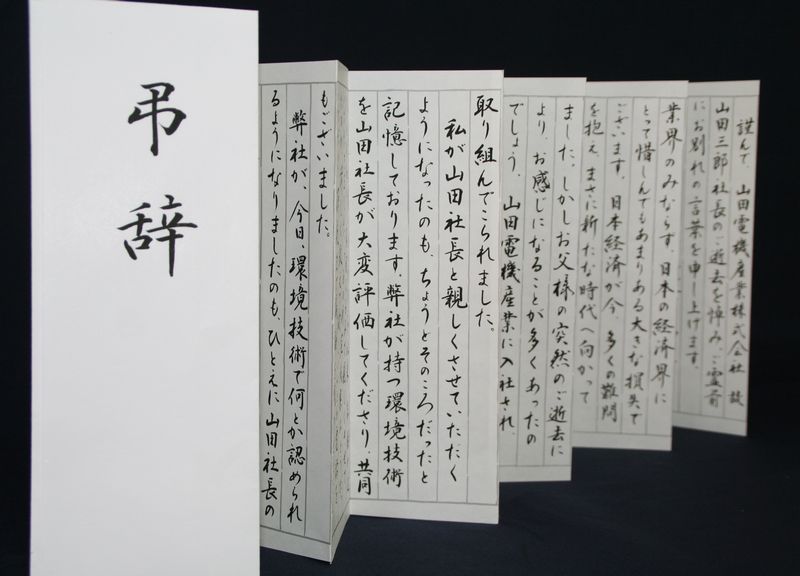 弔辞
謹んで、山田電機産業株式会社 故
山田三郎社長のご逝去を悼み、ご霊前
にお別れの言葉を申し上げます。
業界のみならず、日本の経済界に
とって惜しんでもあまりある大きな損失で
ございます。日本経済が今、多くの難問
を抱え、まさに新たな時代へ向かって
ました。しかしお父様の突然のご逝去に
より、お感じになることが多くあったの
でしょう、山田電機産業に入社され、
取り組んでこられました。
私が山田社長と親しくさせていただく
ようになったのも、ちょうどそのころだったと
記憶しております。弊社が持つ環境技術
を山田社長が大変評価してくださり、共同
もございました。
弊社が、今日、環境技術で何とか認められ
るようになりましたのも、ひとえに山田社長の